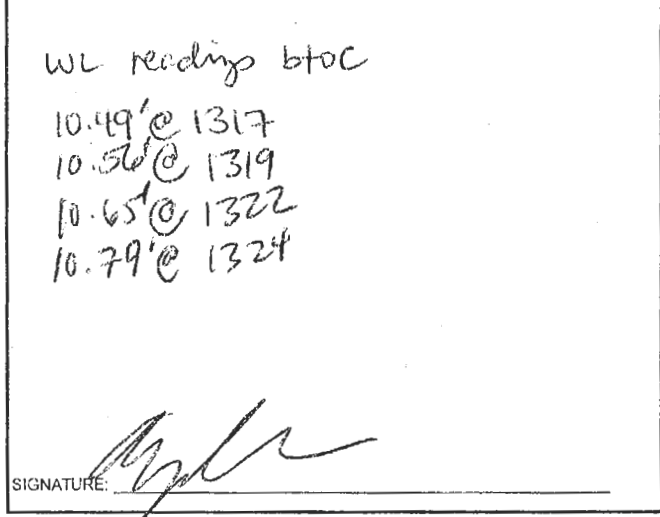 WL readings btoc
10.49'@ 1317
10.56'@ 1319
10.65'@ 1322
10.79'@ 1324
SIGNATURE: